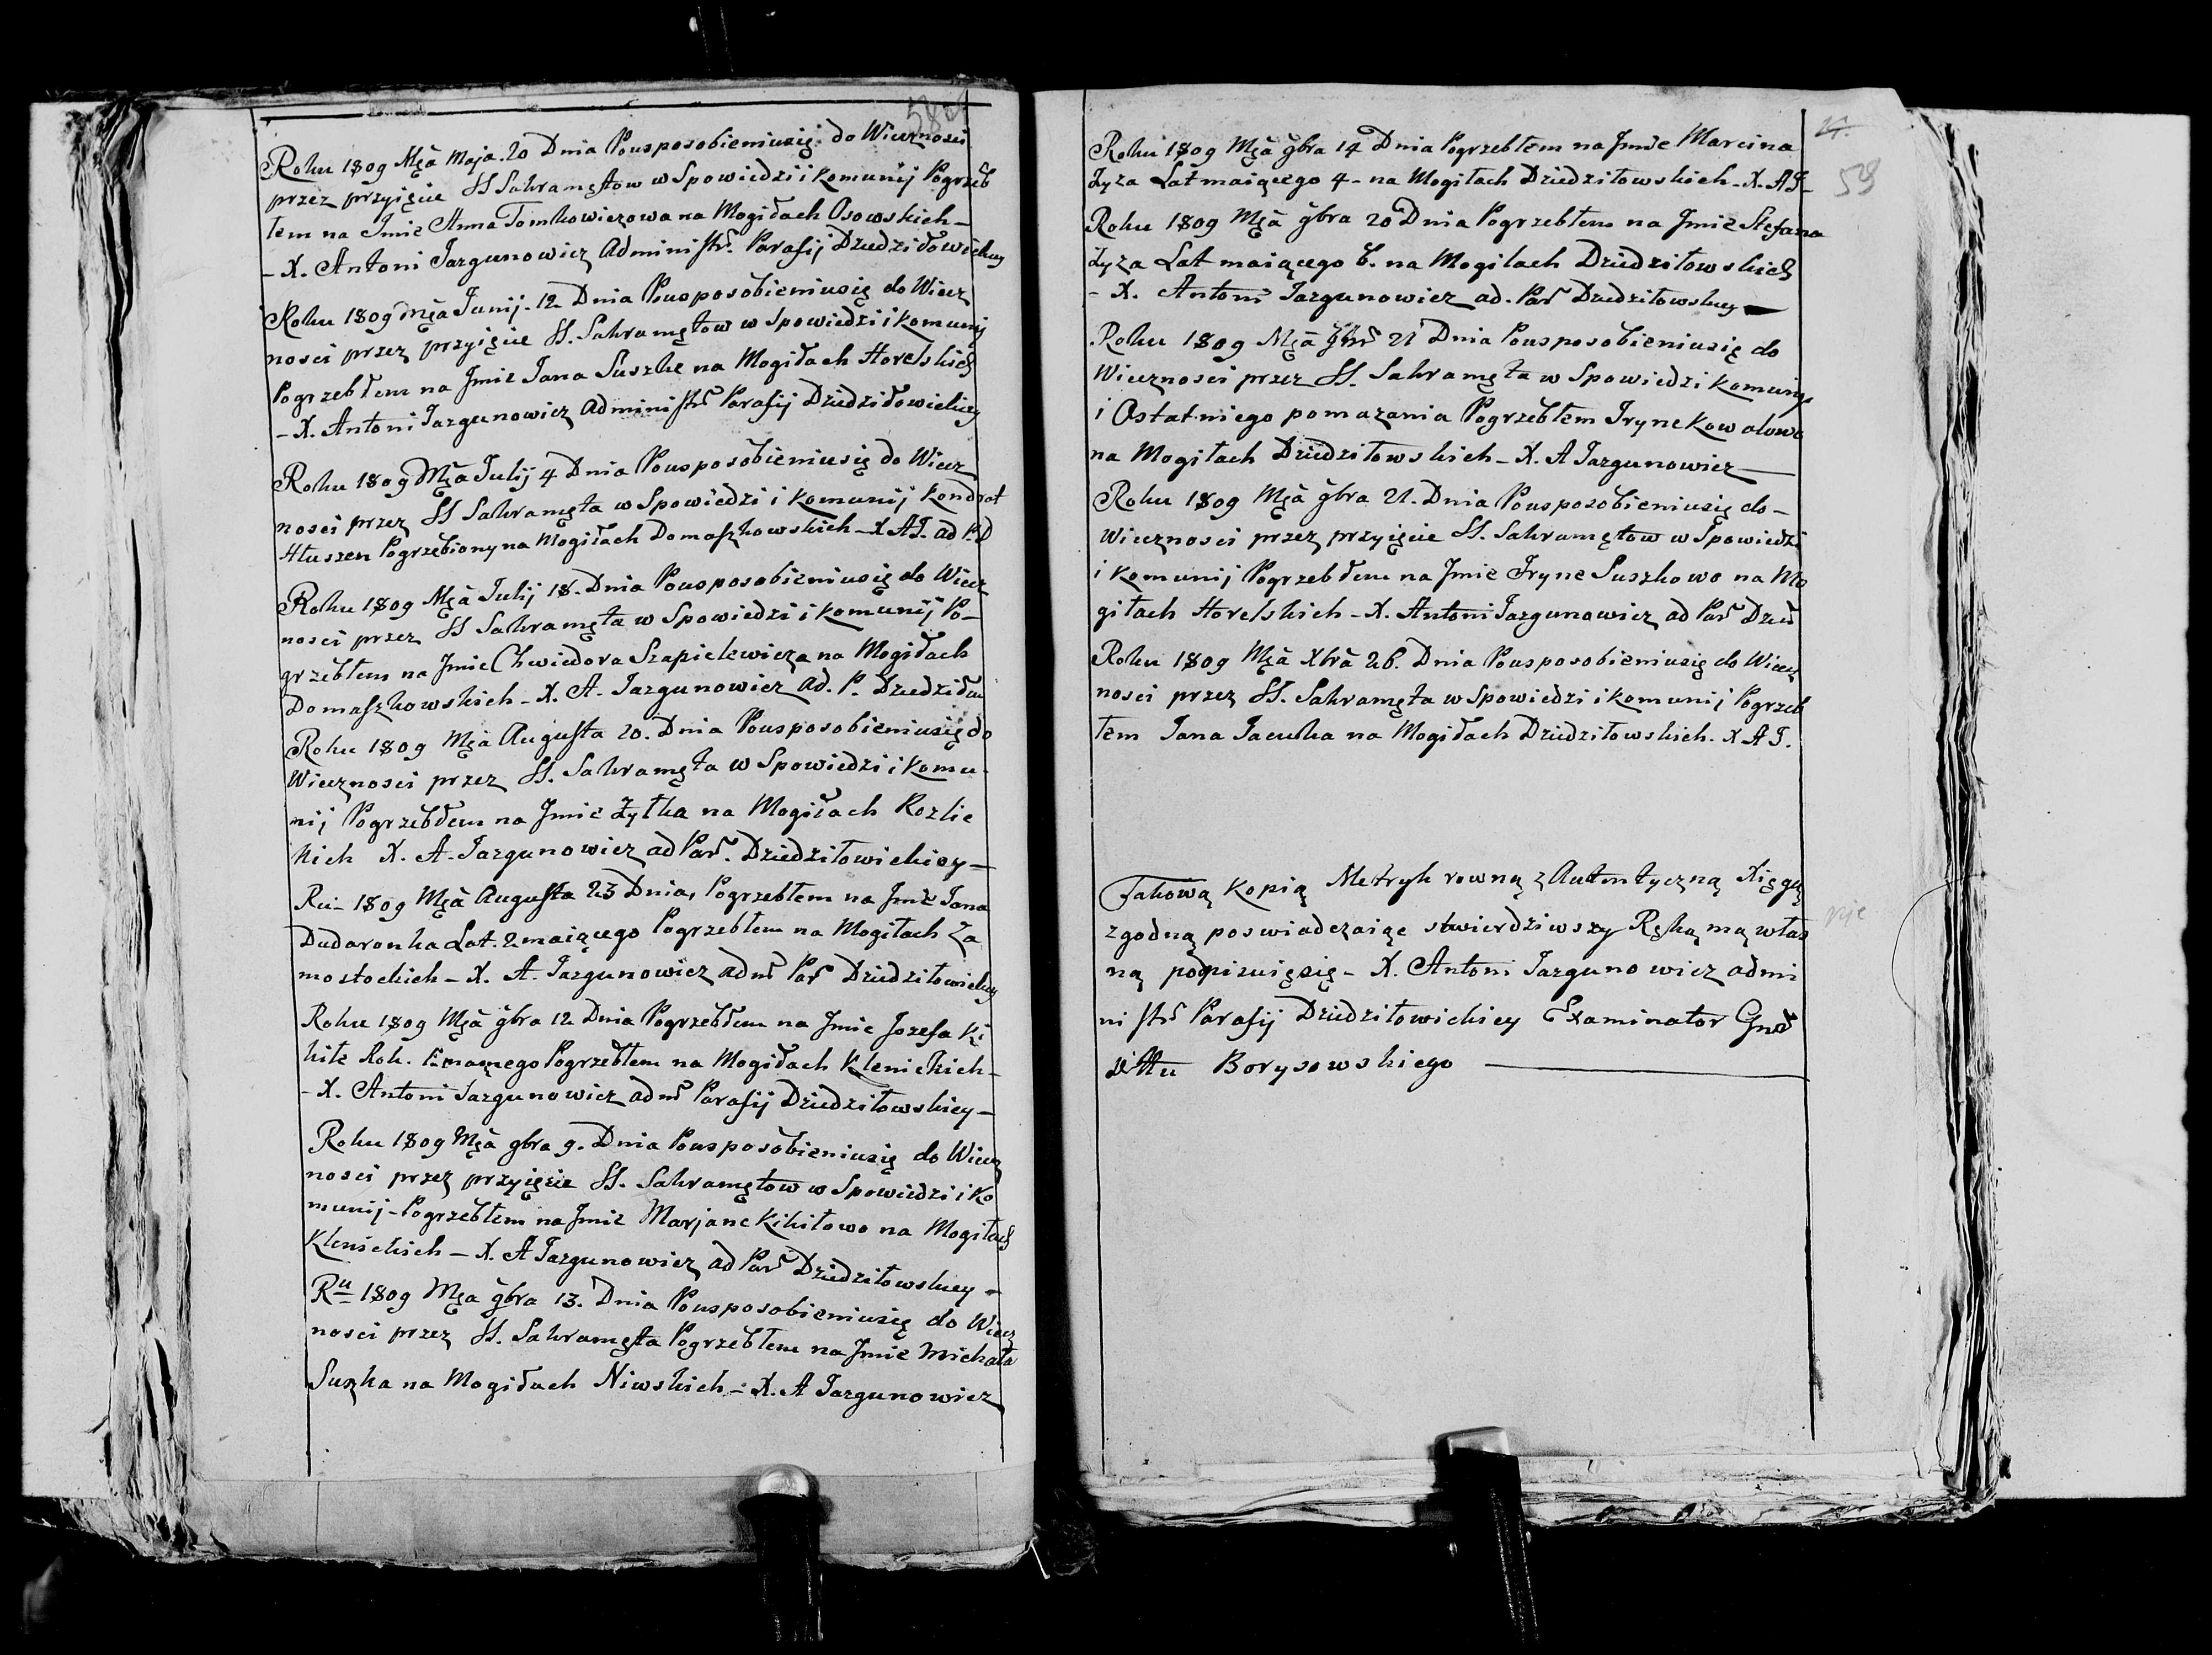 Roku 1809 Mcạ Maja. 20 Dnia Pousposobieniusię do Wiecznosci
przez przyięcie SS Sakramętow w Spowiedzi i Komunij Pogrzeb
łem na Jmie Anna Tomkowiczowa na Mogiłach Osowskich –
– X. Antoni Jazgunowicz Administr. Parafij Dziedziłowickiey
Roku 1809 Mca Junij. 12 Dnia Pousposobieniusię do Wiecz
nosci przez przyięcie SS. Sakramętow w Spowiedzi i Komunij
Pogrzebłem na Jmie Jana Suszke na Mogiłach Horelskich
– X. Antoni Jazgunowicz Administr Parafij Dziedziłowickiey
Roku 1809 Mca Julij 4 Dnia Pousposobieniusię do Wiecz
nosci przez SS Sakramęta w Spowiedzi i Komunij Kondrat
Hłuszen Pogrzebiony na Mogiłach Domaszkowskich – X AJ. ad P. D
Roku 1809 Mca Julij 18. Dnia Pousposobieniusię do Wiecz
nosci przez SS Sakramęta w Spowiedzi i Komunij Po–
grzebłem na Jmie Chwiedora Szapielewicza na Mogiłach
Domaszkowskich – X. A. Jazgunowicz Ad. P. Dziedziłow
Roku 1809 Mca Augusta 20. Dnia Pousposobieniusię do
Wiecznosci przez SS. Sakramęta w Spowiedzi i Komu–
nij Pogrzebłem na Jmie Zytka na Mogiłach Kozlic
kich X. A. Jazgunowicz ad Par. Dziedziłowickiey –
Ru – 1809 Mca Augusta 23 Dnia, Pogrzebłem na Jmie Jana
Dudaronka Lat. 2 maiącego Pogrzebłem na Mogiłach Za
mostockich – X. A. Jazgunowicz adm Par Dziedziłowickiey
Roku 1809 Mca gbra 12 Dnia Pogrzebłem na Jmie Jozefa Ki
kite Rok. 1 maącego Pogrzebłem na Mogiłach Klenickich –
– X. Antoni Jazgunowicz adm Parafij Dziedziłowskiey –
Roku 1809 Mca gbra 9. Dnia Pousposobieniusię do Wiecz
nosci przez przyięcie SS. Sakramętow w Spowiedzi i Ko
munij – Pogrzebłem na Jmie Marjane Kikitowo na Mogiłach
Klenickich – X. A Jazgunowicz ad Par Dziedziłowskiey –
Ru 1809 Mca gbra 13. Dnia Pousposobieniusię do Wiecz
nosci przez SS. Sakramęta Pogrzebłem na Jmie Michała
Suszka na Mogiłach Niwskich – X. A Jazgunowicz
Roku 1809 Mca gbra 14 Dnia Pogrzebłem na Jmie Marcina
Zyza Lat maiącego 4 – na Mogiłach Dziedziłowskich – X. AJ –
59
Roku 1809 Mca gbra 20 Dnia Pogrzebłem na Jmie Stefana
Zyza Lat maiącego 6. na Mogiłach Dziedziłowskich
– X. Antoni Jazgunowicz ad. Par Dziedziłowskiey –
Roku 1809 Mca 21 Dnia Pousposobieniusię do
Wiecznosci przez SS. Sakramęta w Spowiedzi Komunij
i Ostatniego pomazania Pogrzebłem Iryne Kowalowo
na Mogiłach Dziedziłowskich – X. A Jazgunowicz –
Roku 1809 Mca gbra 21. Dnia Pousposobieniusię do –
Wiecznosci przez przyięcie SS. Sakramętow w Spowiedzi
i Komunij Pogrzebłem na Jmie Iryne Suszkowo na Mo
giłach Horelskich – X. Antoni Jazgunowicz ad Par Dzied
Roku 1809 Mca Xbra 26. Dnia Pousposobieniusię do Wiecz
nosci przez SS. Sakramęta w Spowiedzi i Komunij Pogrzeb
łem Jana Jacuka na Mogiłach Dziedziłowskich. X A J.
Takową Kopią Metryk rowną z Autentyczną Xięgą
zgodną poswiadczaiąc stwierdziwszy Ręką mą włas
ną podpisuięsię – X. Antoni Jazgunowicz admi
nistr Parafij Dziedziłowickiey Examinator
Borysowskiego